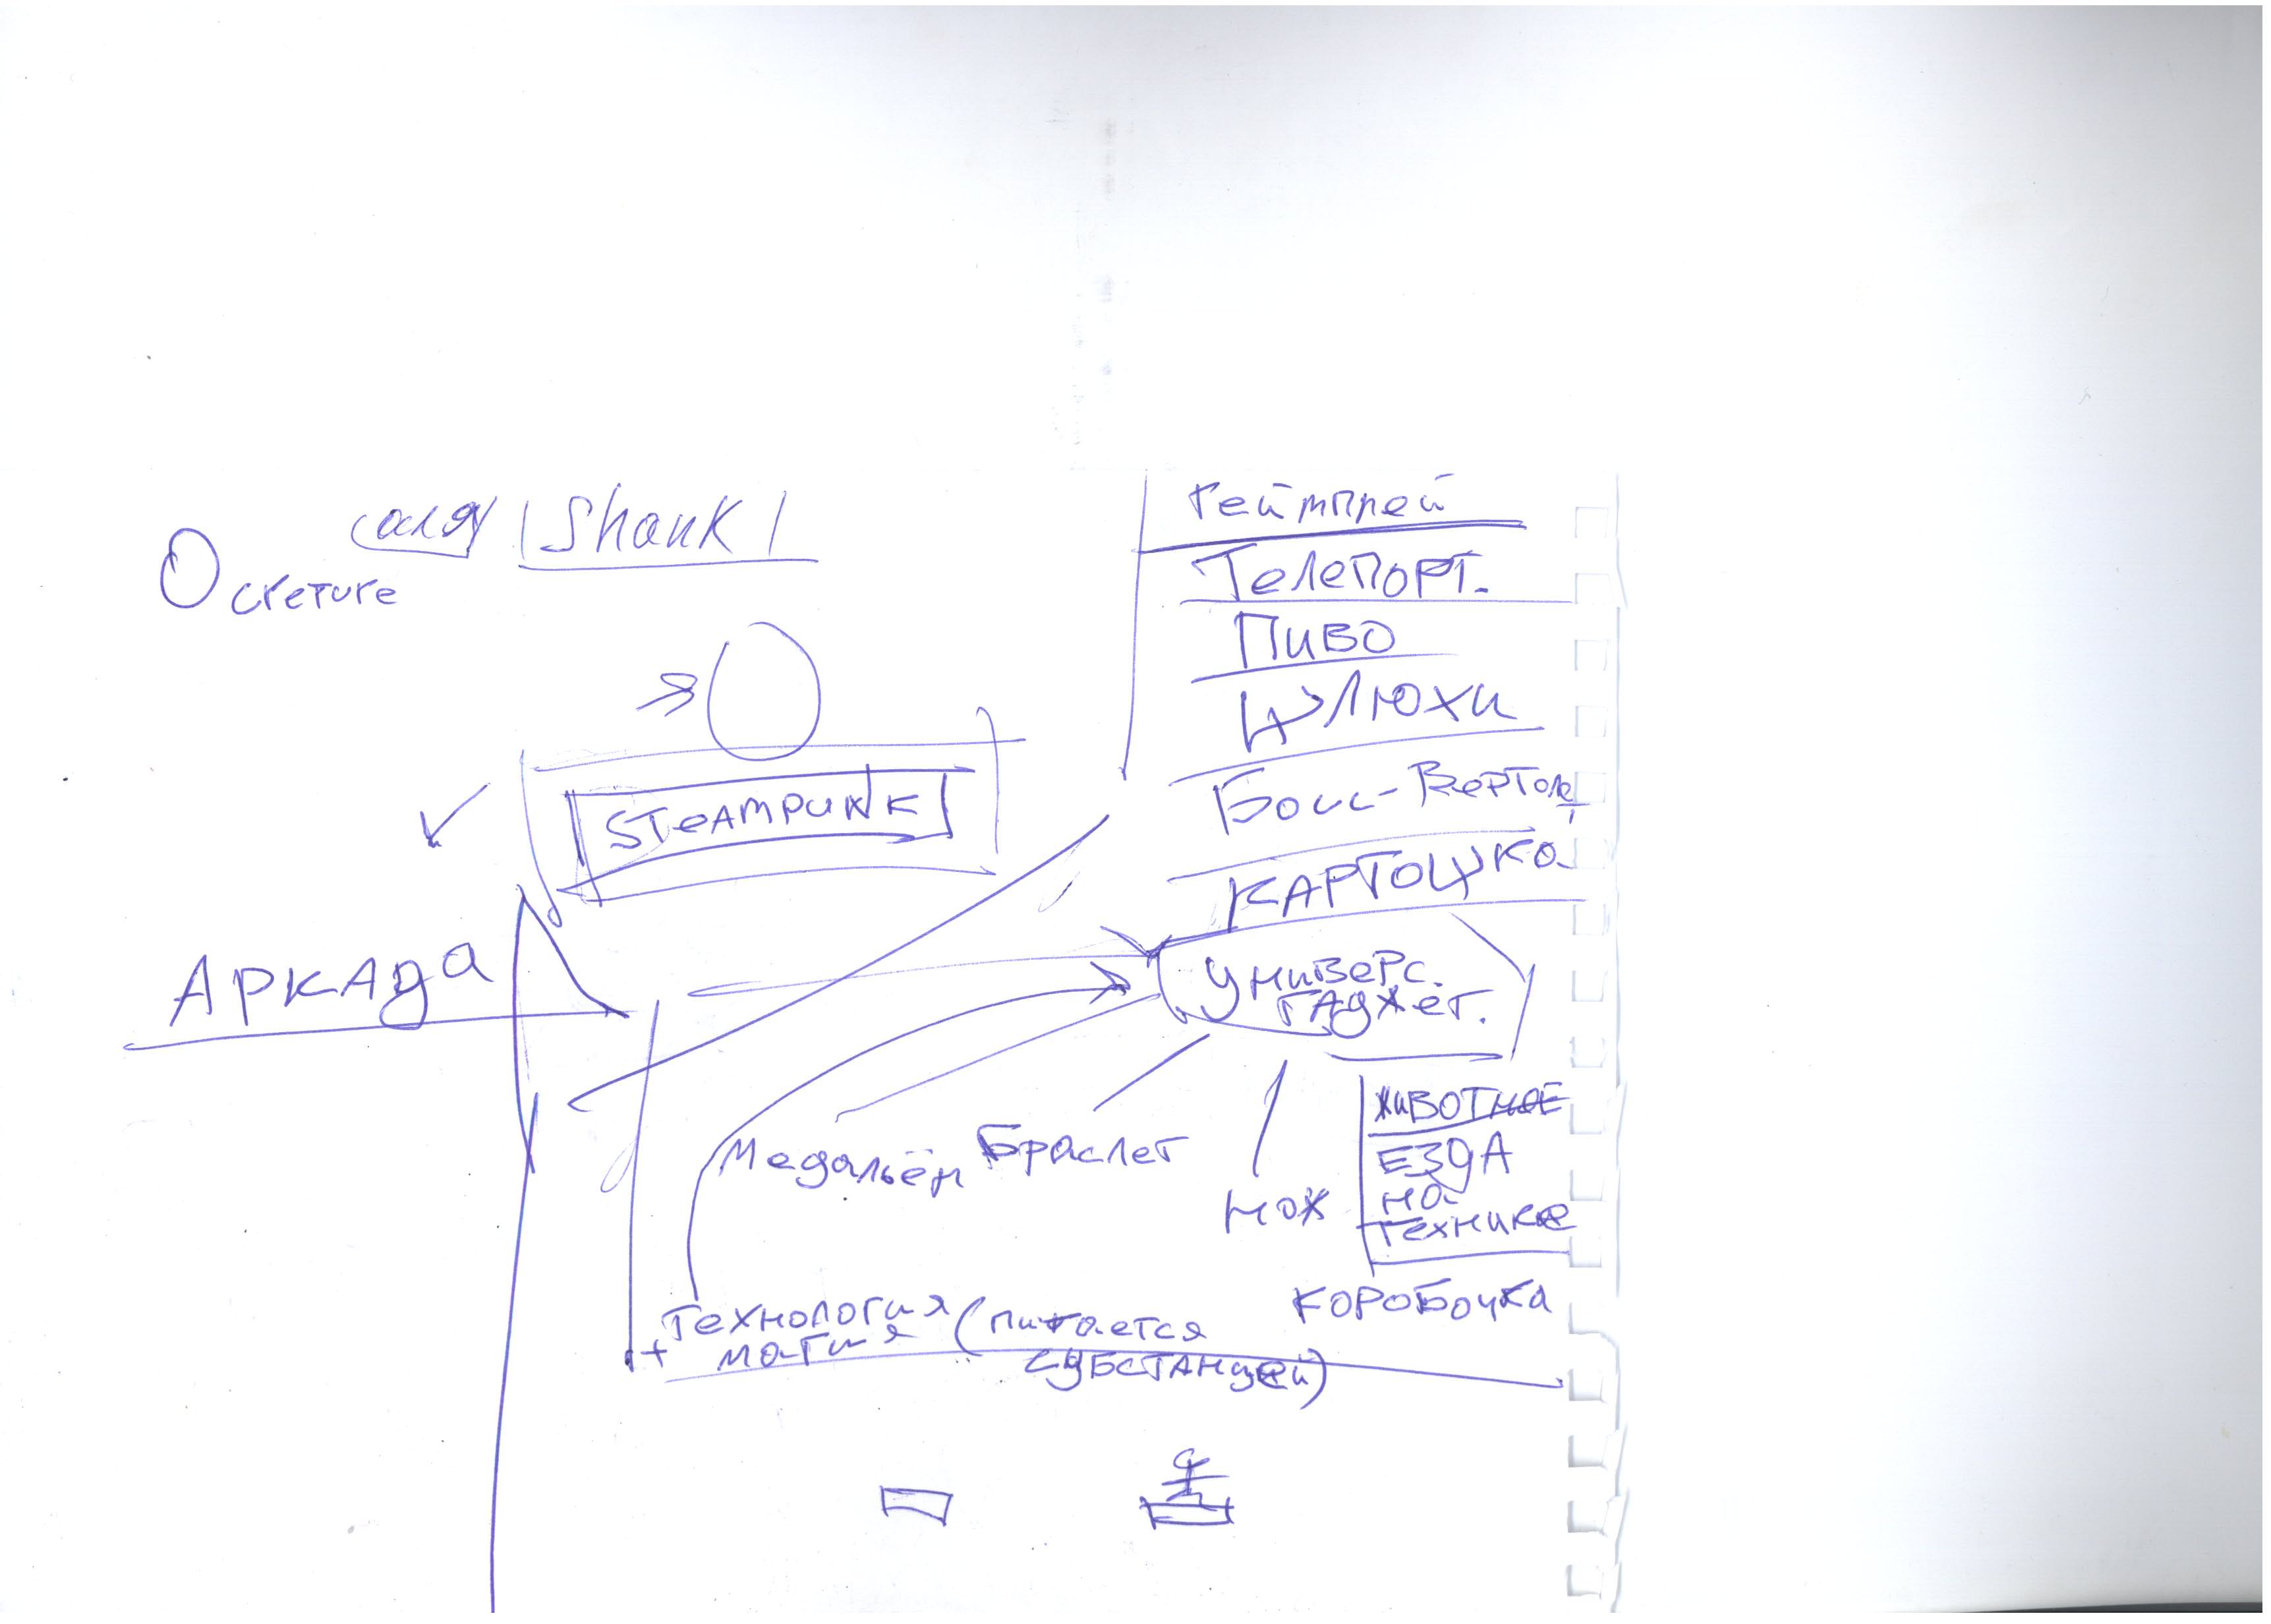 Shank
О сеттинге
STEAMPUNK
Аркада
Геймплей
Телепорт.
Пиво
Босс-Вертолет
Картошка
Универс.
гаджет.
Медальён
Браслет
нож
животное
Езда
на
технике
коробочка
Технология (питается
+ магия субстанцией)